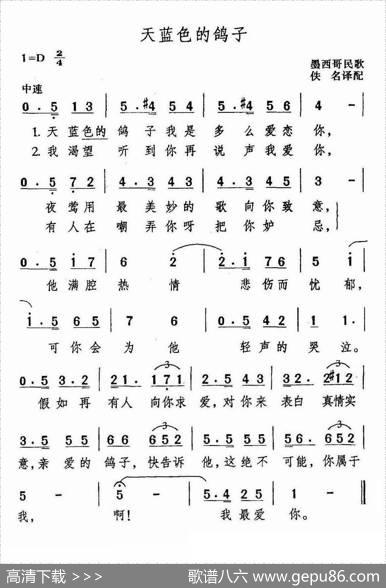 天蓝色的鸽子
1=D 2/4
墨西哥民歌
佚 名译配
中速
0·5 13 5·#4 54 5·#4 56 4 -
1.天 蓝色的 鸽 子我是 多 么 爱恋 你，
2.我 渴望 听 到你再 说 声我爱 你，
0·5 72 4·3 43 4·3 45 3 -
夜 莺用 最 美妙的 歌 向你致 意，
有 人在 嘲 弄你呀 把 你妒 忌，
0·5 1 3 5 7 6 2 2·1 76 5 i
他 满腔 热 情 悲 伤而 忧 郁，
i·5 65 7 6 0·5 42 1 1·
可 你会 为 他 轻 声的 哭 泣。
0·5 3·2 21· 171 0·5 4·2 22· #212
假 如再 有人 向你求 爱，对 你来 表白 真情实
3·5 5·5 66 652 3·5 5·5 56 652
意，亲 爱的 鸽子，快告诉 他，这 绝不 可能，你属于
5 - 5 - 5·4 22 1 -
我， 啊！ 我 最爱 你。
高清下载 >>>
歌谱八六 www.gepu86.com